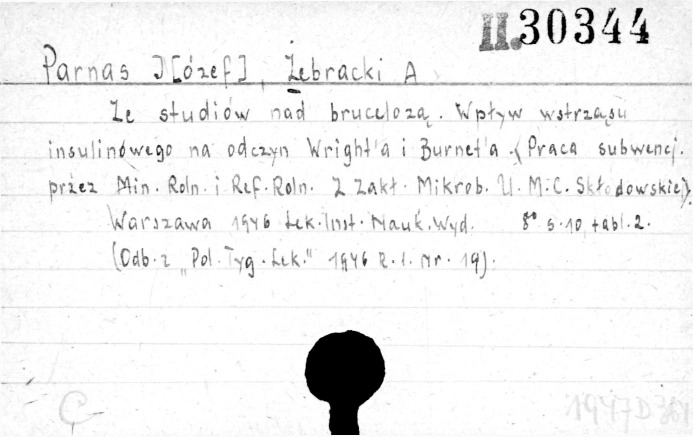 II.30344
Parnas J[ózef], Żebracki A
Ze studiów nad brucelozą. Wpływ wstrząsu
insulinowego na odczyn Wright'a i Burnet'a. (Praca subwencj.
przez Min. Roln. i Ref. Roln. Z Zakł. Mikrob. U. M. C. Skłodowskiej).
Warszawa 1946 Lek. Inst. Nauk. Wyd. 8° s. 10, tabl. 2.
(Odb. z „Pol. Tyg. Lek." 1946 R. I. Nr. 19).
C